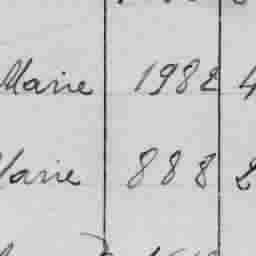 Marie 1982 4
Marie 888 2